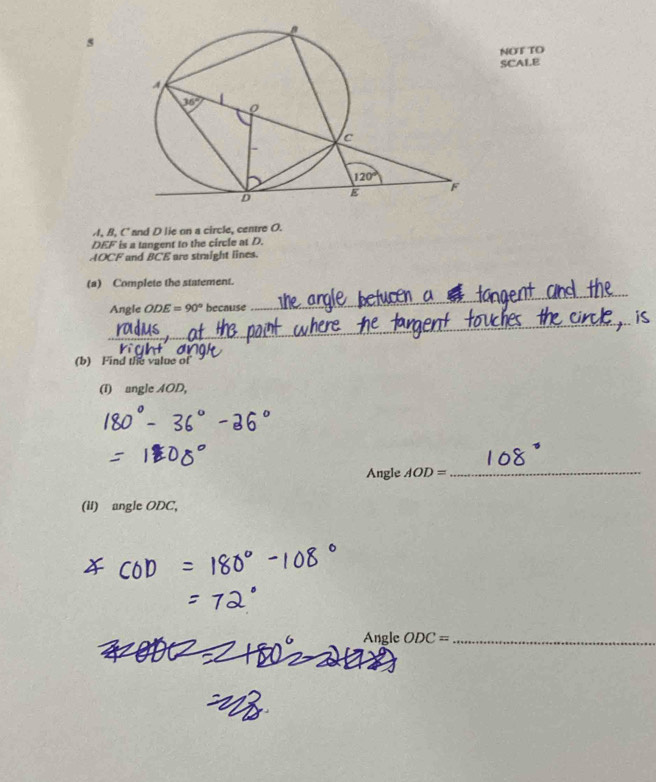 5
NOT TO
SCALE
B
A
36°
O
C
120°
D
E
F
A, B, C and D lie on a circle, centre O.
DEF is a tangent to the circle at D.
AOCF and BCE are straight lines.
(a) Complete the statement.
Angle ODE = 90° because the angle between a tangent and the
radus, at the point where the tangent touches the circle, is
right angle
(b) Find the value of
(i) angle AOD,
180° - 36° - 36°
= 108°
Angle AOD = 108°
(ii) angle ODC,
∡ COD = 180° - 108°
= 72°
Angle ODC =